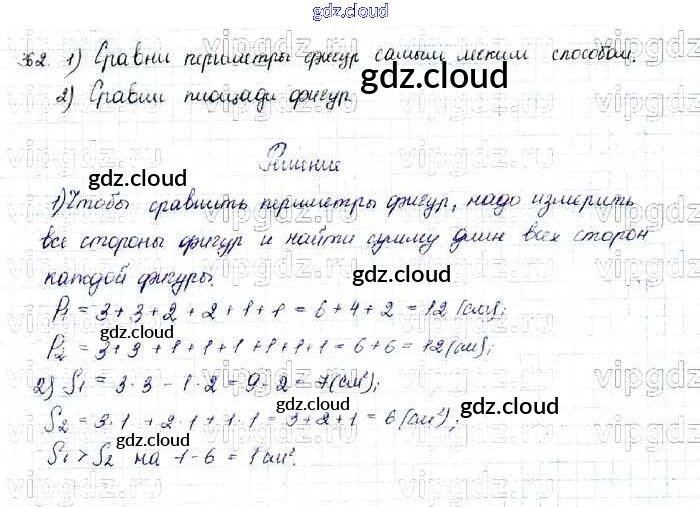 gdz.cloud
362. 1) Сравни периметры фигур самым легким способом.
2) Сравни площади фигур
gdz.cloud
Решение
gdz.cloud
1) Чтобы сравнить периметры фигур, надо измерить
все стороны фигур и найти сумму длин всех сторон
каждой фигуры.
gdz.cloud
P1 = 3 + 3 + 2 + 2 + 1 + 1 = 6 + 4 + 2 = 12 (см);
gdz.cloud
P2 = 3 + 3 + 1 + 1 + 1 + 1 + 1 + 1 = 6 + 6 = 12 (см);
2) S1 = 3 · 3 - 1 · 2 = 9 - 2 = 7 (см²);
gdz.cloud
S2 = 3 · 1 + 2 · 1 + 1 · 1 = 3 + 2 + 1 = 6 (см²);
gdz.cloud
S1 > S2 на 7 - 6 = 1 см².
gdz.cloud